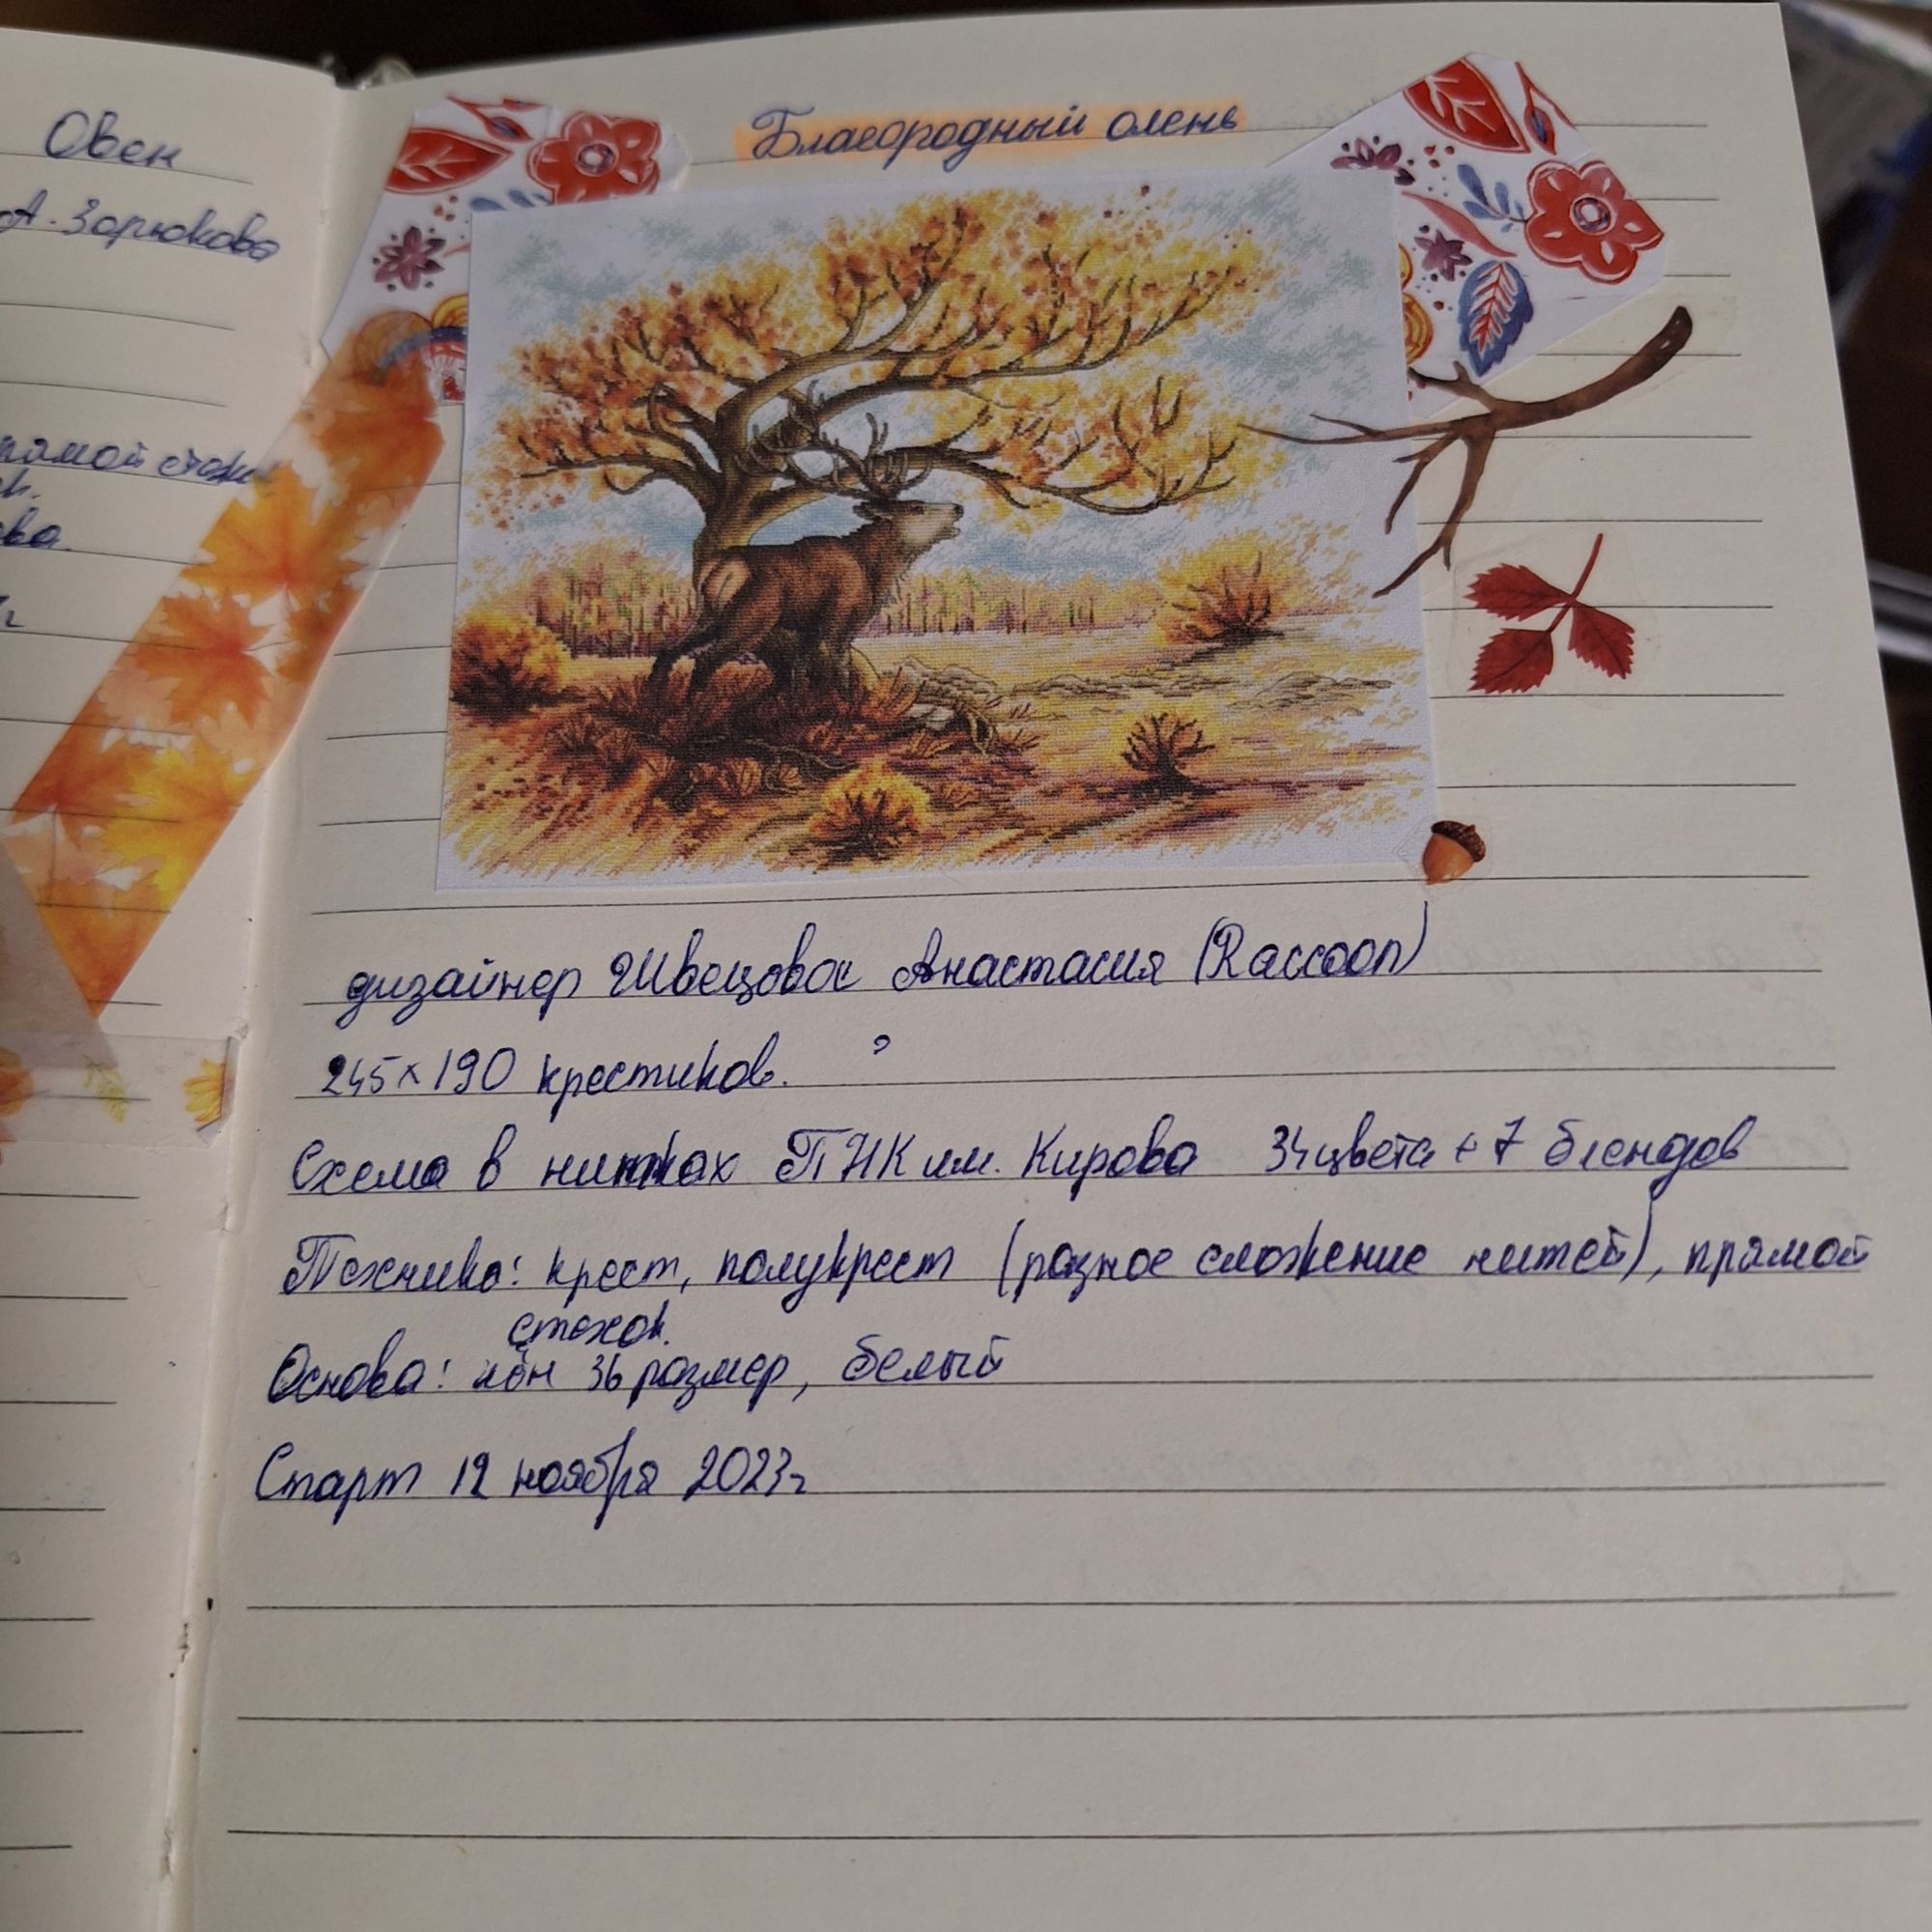 Овен
А. Зарюкова
прямой стежок
Благородный олень
дизайнер Швецова Анастасия (Raccoon)
245×190 крестиков.
Схема в нитках ПНК им. Кирова 34 цвета + 7 блендов
Техника: крест, полукрест (разное сложение нитей), прямой
стежок.
Основа: лён 36 размер, белый
Старт 12 ноября 2023г